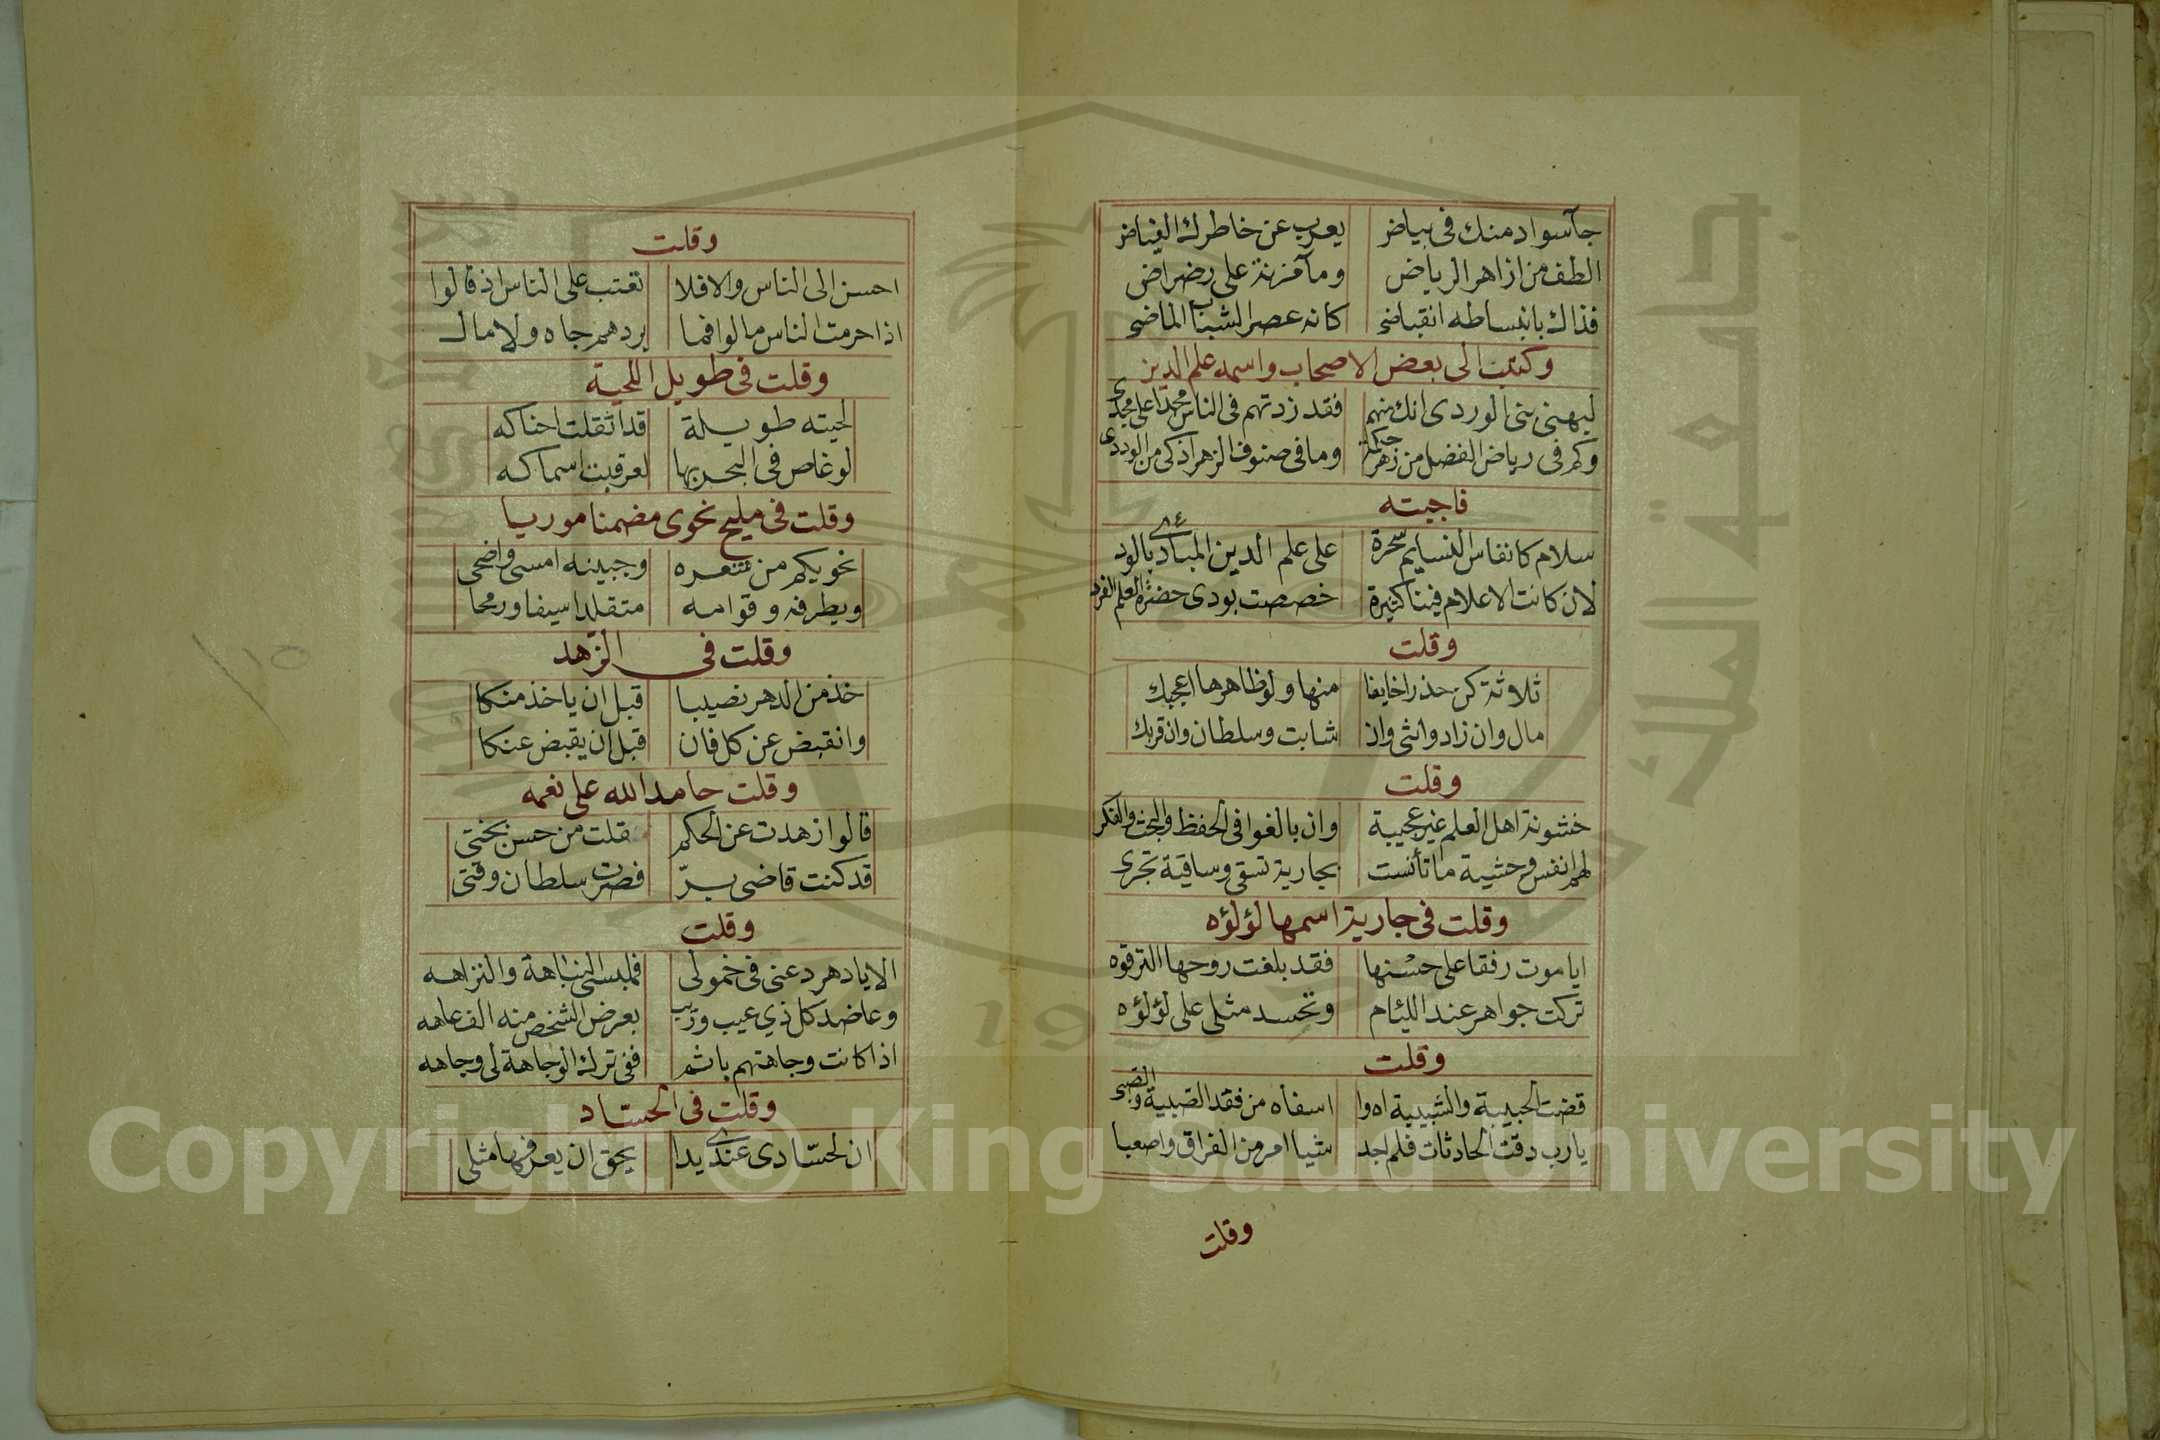 جآ سواد منك فى بياض يعرب عن خاطرك الفياض
الطف من ازاهر الرياض وما مزنة على رضراض
فذاك بانبساطه انقباضى كانه عصر الشباب الماضى
وكتبت الى بعض الاصحاب واسمه علم الدين
ليهنى بنى الوردى انك منهم فقد زدتهم فى الناس مجدا على مجدى
وكم فى رياض الفضل من زهر حكمة وما فى صنوف الزهر اذكى من الوردى
فاجبته
سلام كانفاس النسايم سحرة على علم الدين المبادئ بالود
لان كانت الاعلام فينا كثيرة خصصت بودى حضرة العلم الفرد
وقلت
ثلاثة كن حذرا خايفا منها ولو ظاهرها اعجبك
مال وان زاد وانثى وان شابت وسلطان وان قربك
وقلت
خشونة اهل العلم غير عجيبة وان بالغوا فى الحفظ والبحث والفكر
لهم انفس وحشية ما تأنست بجارية تسقى وساقية تجرى
وقلت فى جارية اسمها لؤلؤه
ايا موت رفقا على حسنها فقد بلغت روحها الترقوه
تركت جواهر عند اللئام وتحسد مثلى على لؤلؤه
وقلت
قضت الحبيبة والشبيبة اه وا اسفاه من فقد الصبية والصبى
يارب دقت الحادثات فلم اجد شيا امر من الفراق واصعبا
وقلت
وقلت
احسن الى الناس والا فلا تعتب على الناس اذ قالوا
اذا حرمت الناس مالوا فما يردهم جاه ولا مال
وقلت فى طويل اللحية
لحيته طويلة قد اثقلت احناكه
لو غاص فى البحر بها لعرقبت اسماكه
وقلت فى مليح نحوى مضمنا موريا
نحويكم من شعره وجبينه امسى واضحى
وبطرفه وقوامه متقلدا سيفا ورمحا
وقلت فى الزهد
خذ من الدهر نصيبا قبل ان ياخذ منكا
وانقبض عن كل فان قبل ان يقبض عنكا
وقلت حامدا لله على نعمه
قالوا زهدت عن الحكم فقلت من حسن بختى
قد كنت قاضى بر فصرت سلطان وقتى
وقلت
الا يا دهر دعنى فى خمولى فملبسى النباهة والنزاهه
وعاضد كل ذي عيب وريب بعرض الشخص منه الف عاهه
اذا كانت وجاهتهم باثم ففى ترك الوجاهة لى وجاهه
وقلت فى الحساد
ان لحسادى عندى يدا يحق ان يعرفها مثلى
Copyright © King Saud University